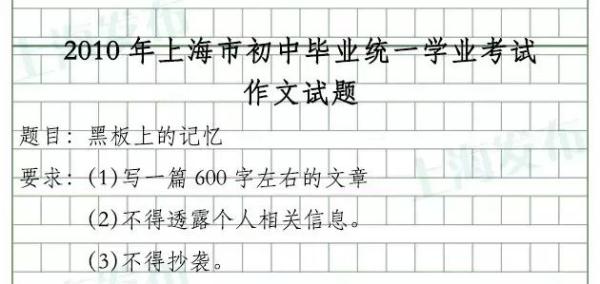 2010年上海市初中毕业统一学业考试
作文试题
题目：黑板上的记忆
要求：(1)写一篇600字左右的文章
(2)不得透露个人相关信息。
(3)不得抄袭。
上海发布